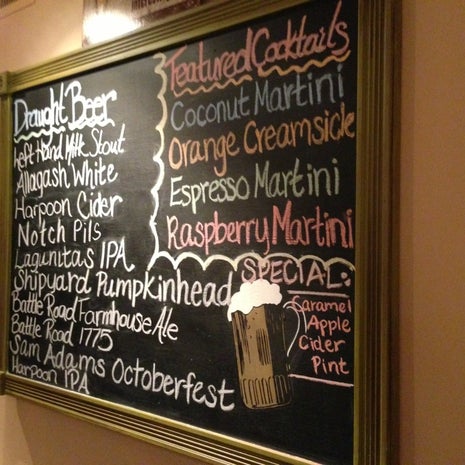 Draught Beer
Left Hand Milk Stout
Allagash White
Harpoon Cider
Notch Pils
Lagunitas IPA
Shipyard Pumpkinhead
Battle Road Farmhouse Ale
Battle Road 1775
Sam Adams Octoberfest
Harpoon IPA
Featured Cocktails
Coconut Martini
Orange Creamsicle
Espresso Martini
Raspberry Martini
SPECIAL:
Caramel
Apple
Cider
Pint